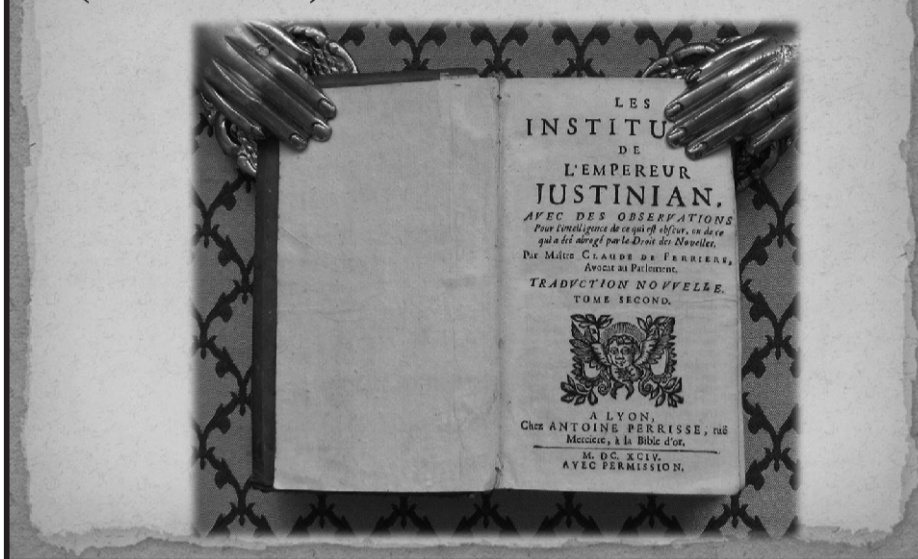 LES
INSTITU
DE
L'EMPEREUR
JUSTINIAN,
AVEC DES OBSERVATIONS
Pour l'intelligence de ce qui est obscur, ou de ce
qui a été abrogé par le Droit des Novelles.
Par Maître CLAUDE DE FERRIERE,
Avocat au Parlement.
TRADVCTION NOVVELLE.
TOME SECOND.
A LYON,
Chez ANTOINE PERRISSE, ruë
Merciere, à la Bible d'or.
M. DC. XCIV.
AVEC PERMISSION.